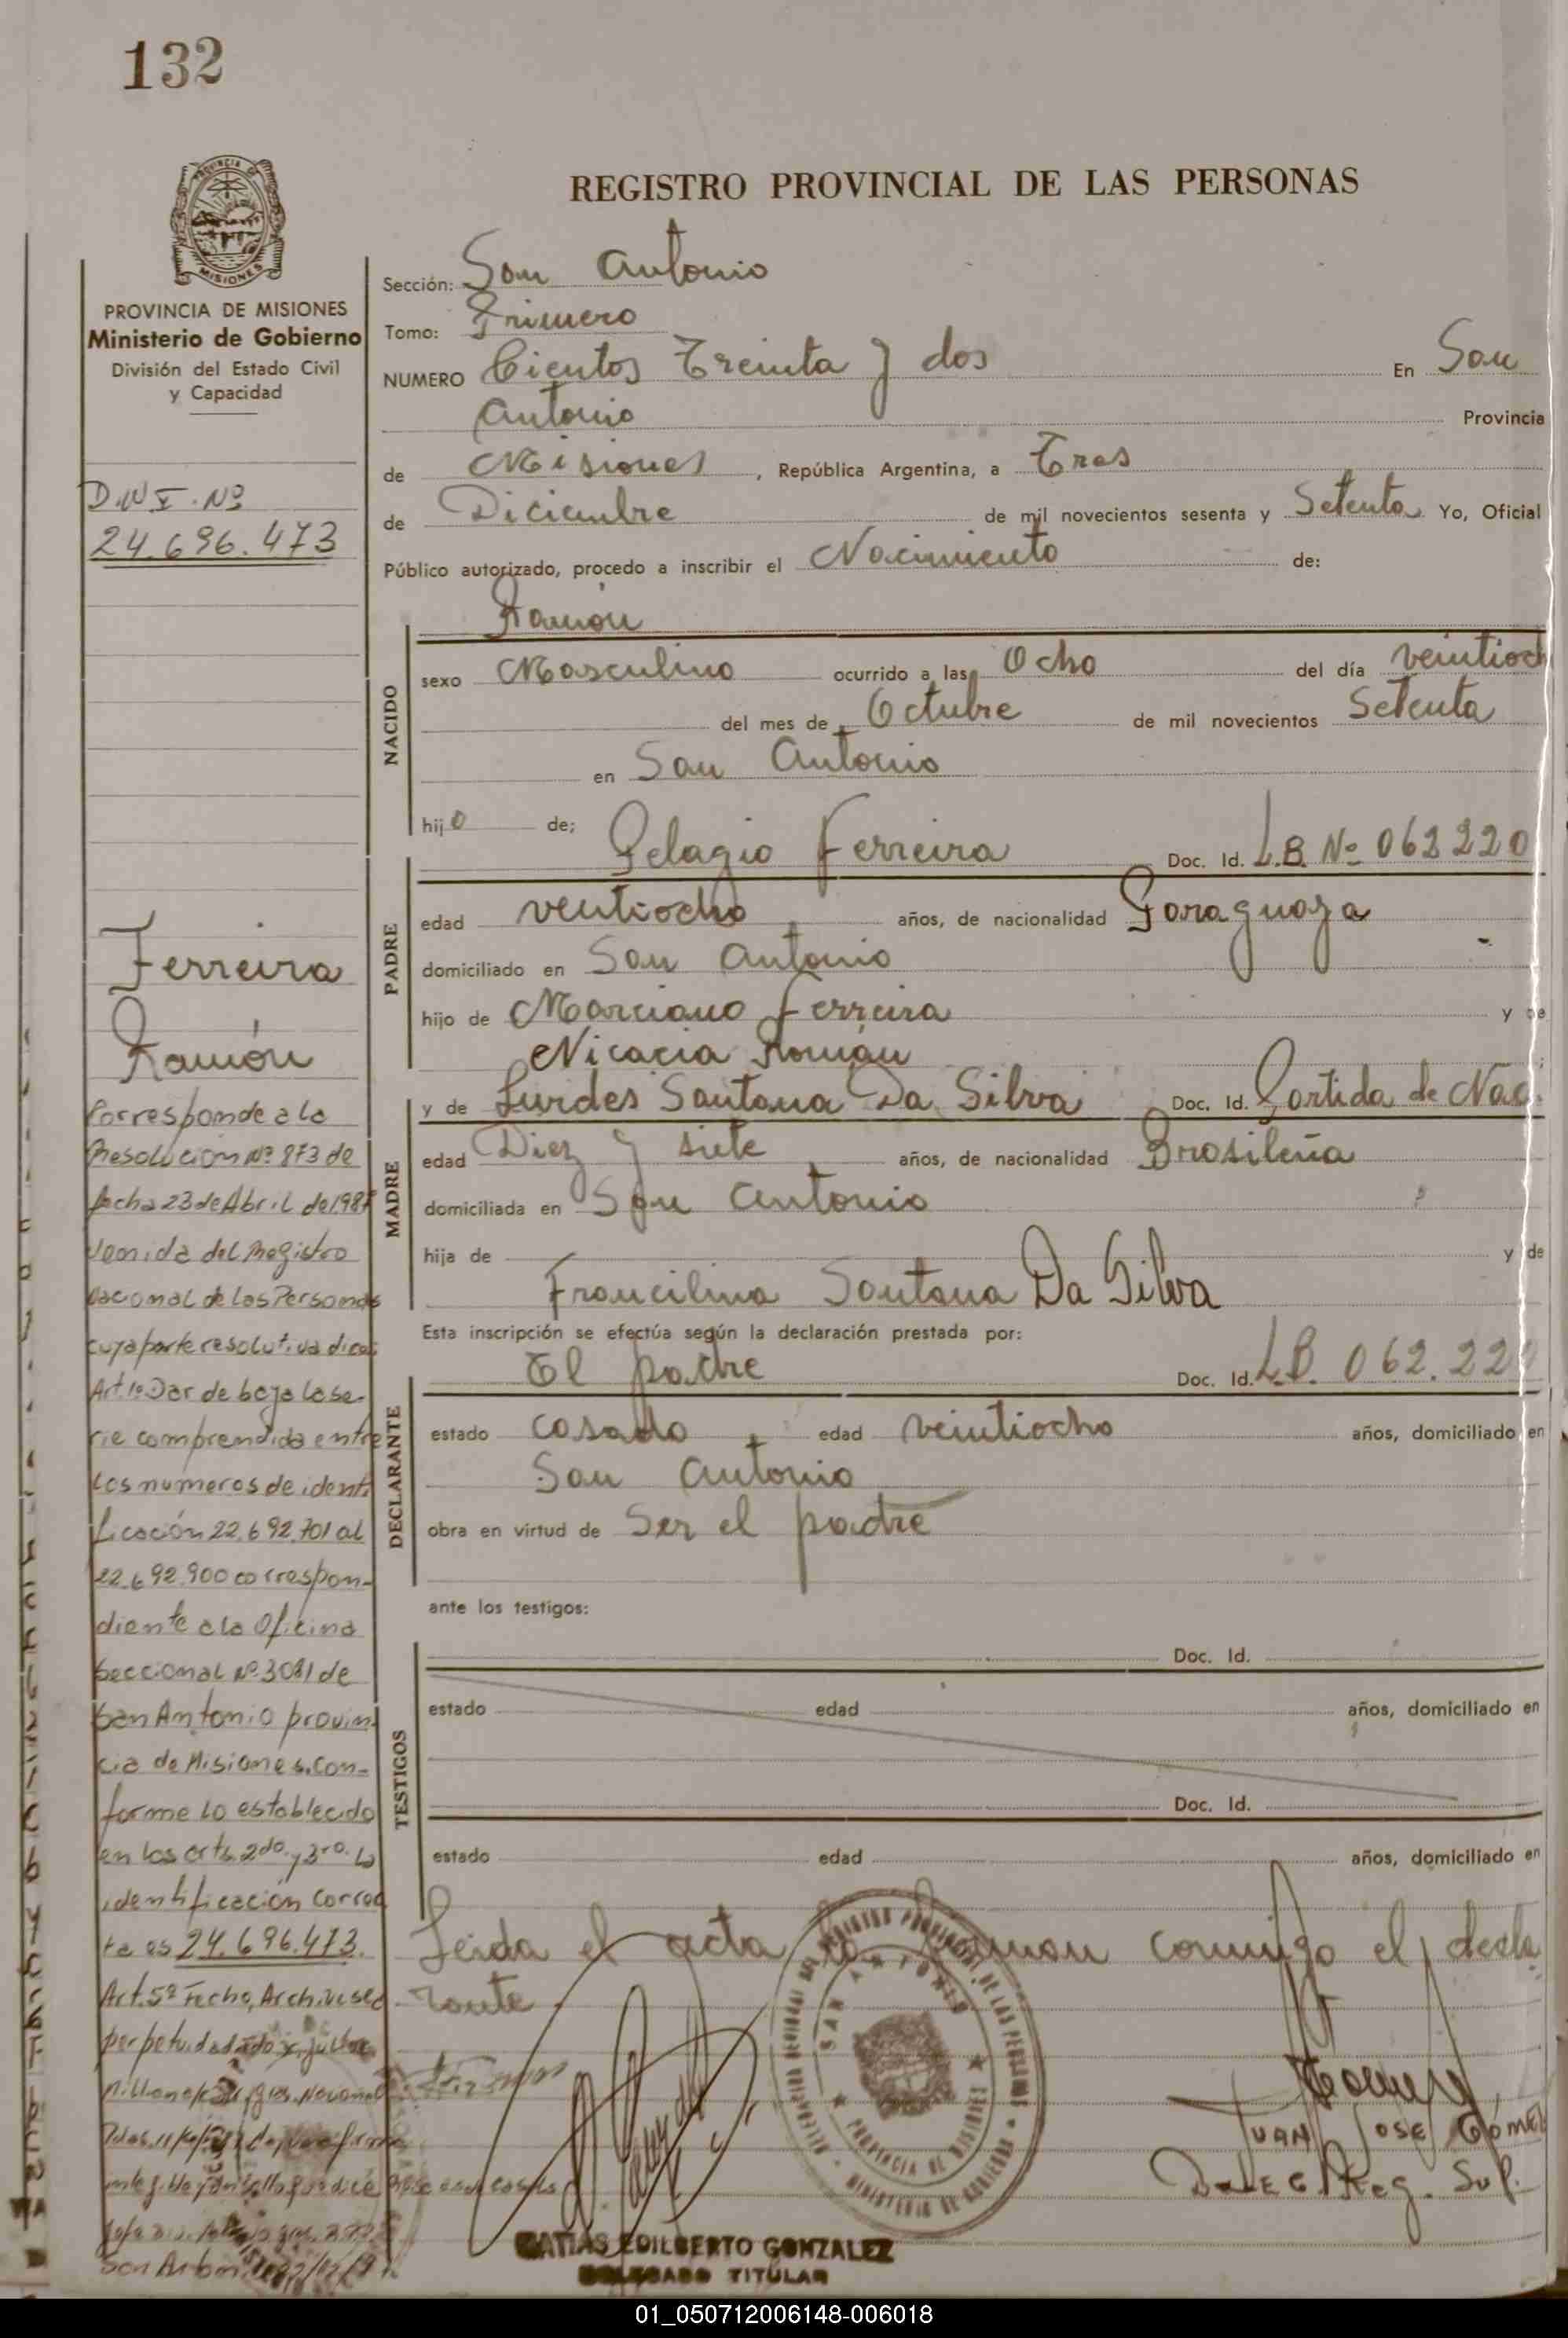 132
PROVINCIA DE
MISIONES
PROVINCIA DE MISIONES
Ministerio de Gobierno
División del Estado Civil
y Capacidad
D.N.I. Nº
24.696.473
Ferreira
Ramón
Corresponde a la
Resolución Nº 873 de
fecha 23 de Abril de 198
venida del Registro
Nacional de las Personas
cuya parte resolutiva dice:
Art. 1º Dar de baja la se-
rie comprendida entre
los numeros de identi
ficación 22.692.701 al
22.692.900 correspon-
diente a la Oficina
Seccional Nº 3081 de
San Antonio provin
cia de Misiones. Con-
forme lo establecido
en los arts. 2do. y 3ro. la
identificación correc
ta es 24.696.473.
Art. 5º Fecho, Archivese a
REGISTRO PROVINCIAL DE LAS PERSONAS
Sección: San Antonio
Tomo: Primero
NUMERO Cientos Treinta y dos En San
Antonio Provincia
de Misiones, República Argentina, a Tres
de Diciembre de mil novecientos sesenta y Setenta Yo, Oficial
Público autorizado, procedo a inscribir el Nacimiento de:
Ramón
NACIDO
sexo Masculino ocurrido a las Ocho del día veintioch
del mes de Octubre de mil novecientos Setenta
en San Antonio
hijo de;
Pelagio Ferreira Doc. Id. L.B. Nº 062220
PADRE
edad ventiocho años, de nacionalidad Paraguaya
domiciliado en San Antonio
hijo de Marciano Ferreira y de
Nicacia Román
y de Lurdes Santana Da Silva Doc. Id. Partida de Nac.
MADRE
edad Diez y siete años, de nacionalidad Brasileña
domiciliada en San Antonio
hija de y de
Francilina Santana Da Silva
Esta inscripción se efectúa según la declaración prestada por:
El padre Doc. Id. L.B. 062.220
DECLARANTE
estado casado edad veintiocho años, domiciliado en
San Antonio
obra en virtud de Ser el padre
ante los testigos:
TESTIGOS
Doc. Id.
estado edad años, domiciliado en
Doc. Id.
estado edad años, domiciliado en
Leida el acta la firman conmigo el decla
rante
SAN ANTONIO
PROVINCIA DE MISIONES
MINISTERIO DE GOBIERNO
JUAN JOSE GÓMEZ
DELEG. Reg. Sup.
MATIAS EDILBERTO GONZALEZ
DELEGADO TITULAR
01_050712006148-006018